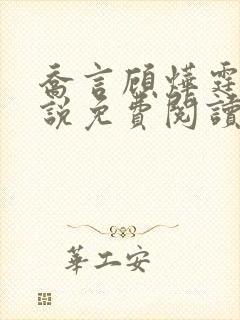 喬言顧燁霆
說免費閱讀
華工安